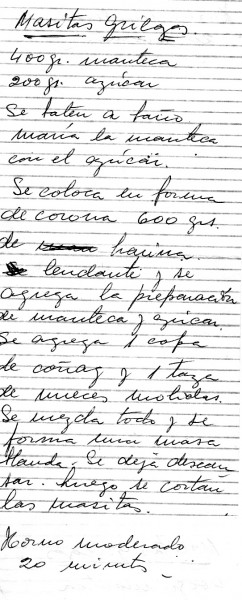 Masitas Griegas.
400 gr. manteca
200 gr. azúcar
Se baten a baño
maría la manteca
con el azúcar.
Se coloca en forma
de corona 600 grs.
de harina.
leudante y se
agrega la preparación
de manteca y azúcar.
Se agrega 1 copa
de coñag y 1 taza
de nueces molidas.
Se mezcla todo y se
forma una masa
blanda. Se deja descan
sar. Luego se cortan
las masitas.
Horno moderado
20 minuts_